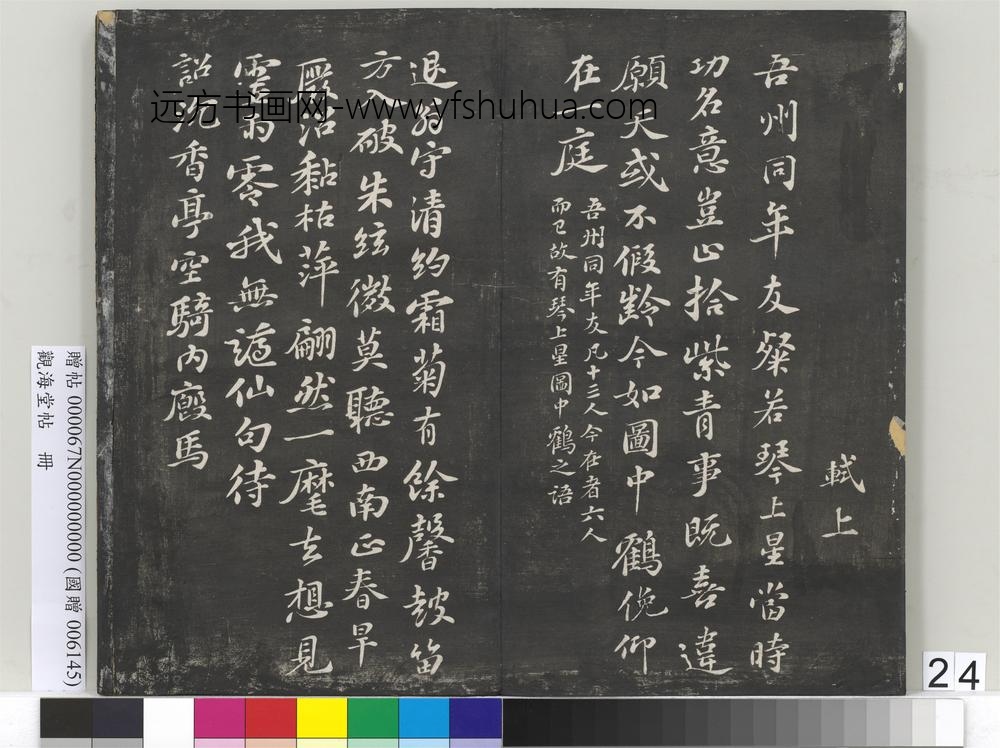 軾上
吾州同年友粲若琴上星當時
功名意豈止拾紫青事既喜違
願天或不假齡今如圖中鶴俛仰
在一庭
吾州同年友凡十三人今在者六人
而已故有琴上星圖中鶴之語
退翁守清約霜菊有餘馨鼓笛
方入破朱絃微莫聽西南正春早
廢沼黏枯萍翩然一麾去想見
靈雨零我無謫仙句待
詔沈香亭空騎內廄馬
远方书画网-www.yfshuhua.com
贈帖 000067N000000000 (國贈 006145)
觀海堂帖 冊
24